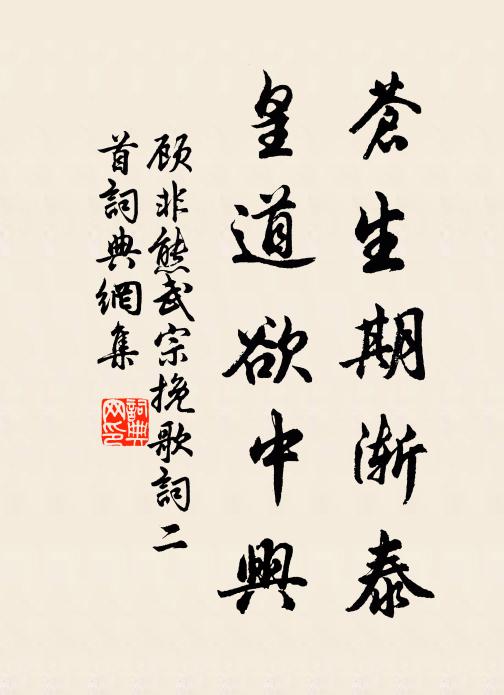 蒼生期漸泰
皇道欲中興
顾非熊武宗挽歌詞二
首詞典網集
詞典
网印